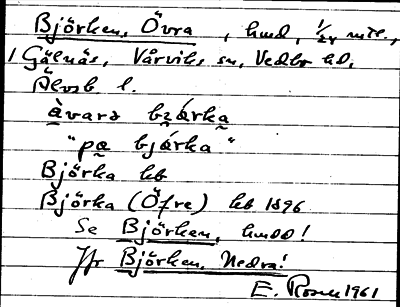 Björken, Övra , hmd, 1/24 mtl.,
1 Gälnäs, Vårviks sn, Vedbo hd,
Älvsb l.
àvara bzárka
"pa bjárka"
Björka kb
Björka (Öfre) kb 1896
Se Björken, hmdd!
Jfr Björken, Nedra!
E. Rosen 1961